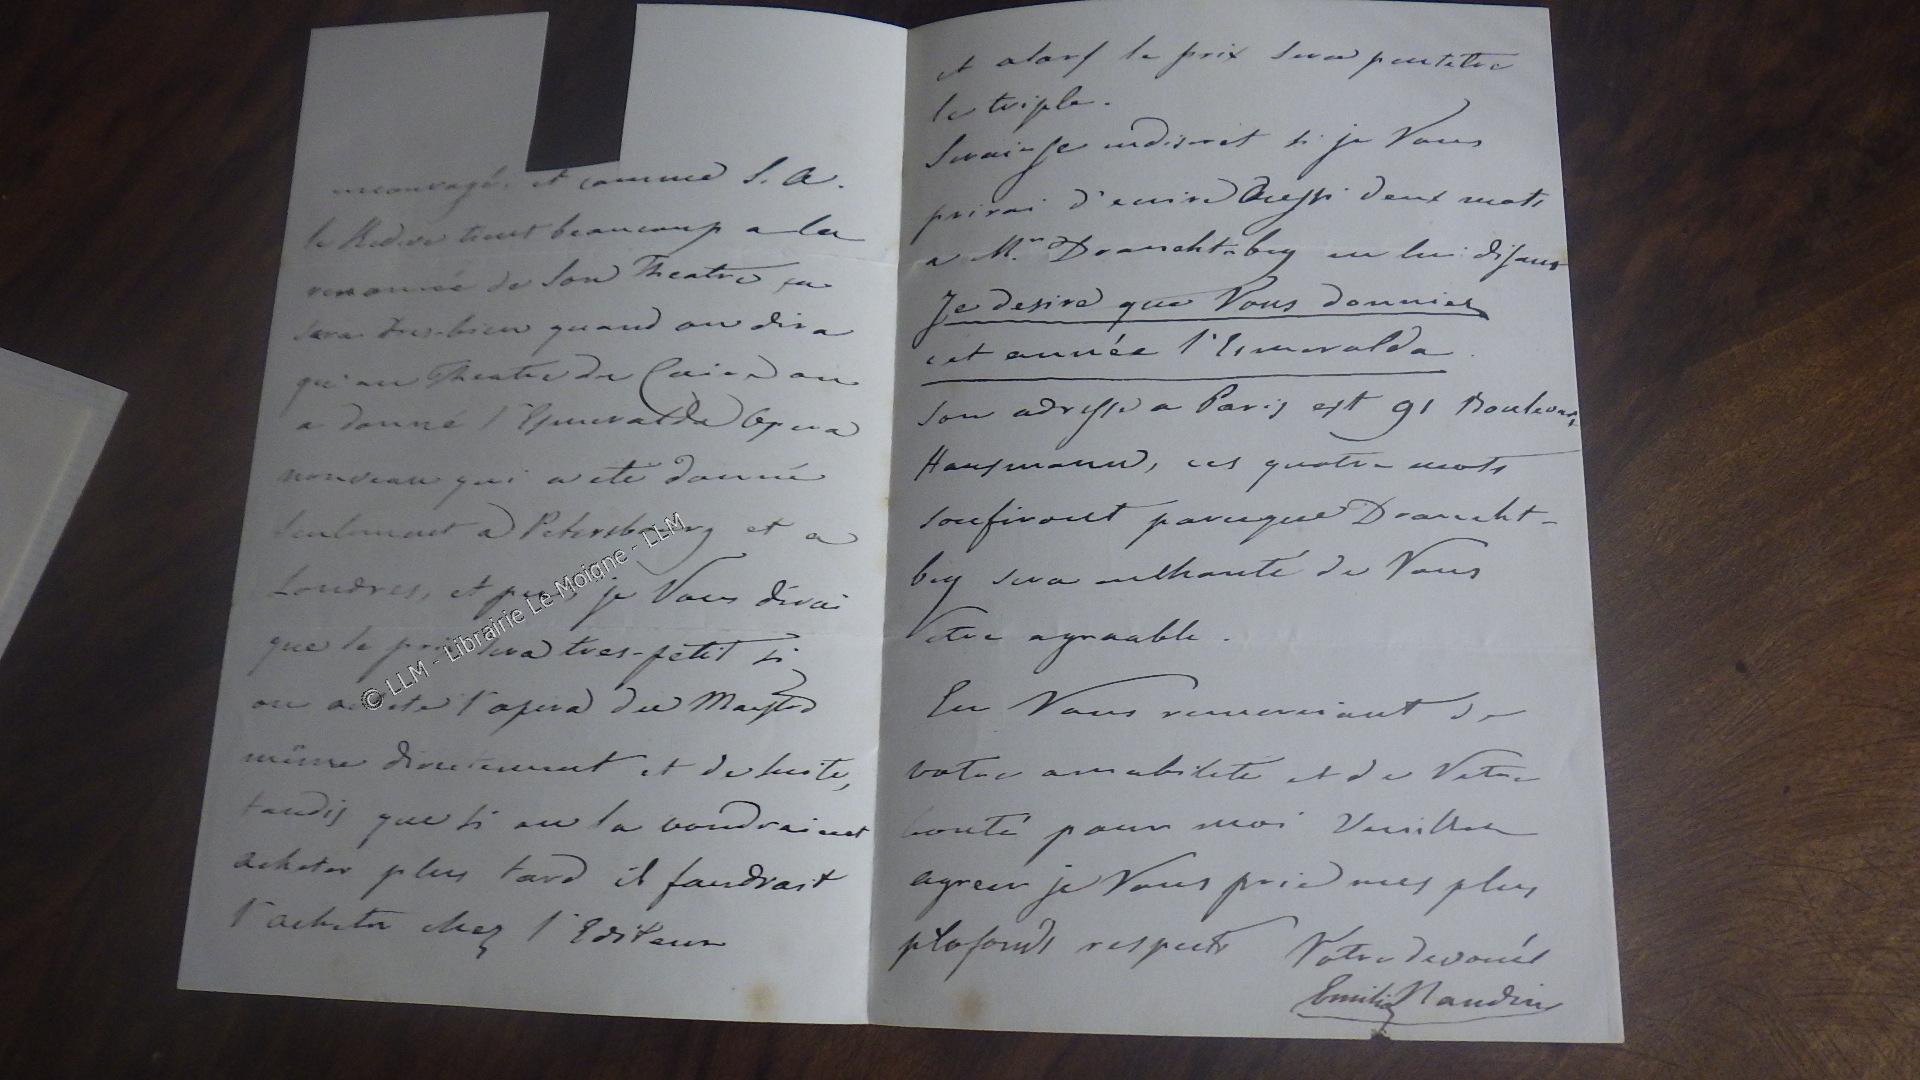 encouragé, et comme S. A.
le Kedive tient beaucoup a la
renomée de Son Theatre ça
sera tres-bien quand on dira
qu'au Theatre du Caire on
a donné l'Esmeralda Opera
nouveau qui a eté donné
seulement a Petersbourg et a
Londres, et puis je Vous dirai
que le prix sera tres-petit si
on achete l'opera du Maestro
même directement et de suite,
tandis que si on la voudraient
acheter plus tard il faudrait
l'acheter chez l'Editeur
et alors le prix sera peutetre
le triple.
Serais-je indiscret si je Vous
prirai d'ecrire Aussi deux mots
a Mr. Draneht-bey en lui disant
Je desire que Vous donniez
cet année l'Esmeralda.
Son adresse a Paris est 91 Boulevar
Hausmann, ces quatre mots
soufiront parceque Draneht-
bey sera enchanté de Vous
etre agreable.
En Vous remerciant de
votre amabilité et de Votre
bonté pour moi Veuillez
agreer je Vous prie mes plus
profonds respects Votre devoué
Emilio Naudin
© LLM - Librairie Le Moigne - LLM